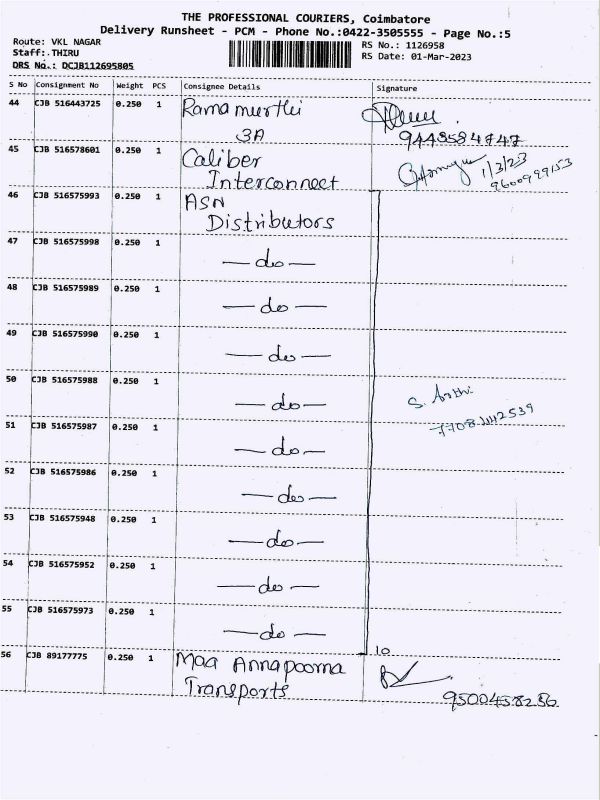 THE PROFESSIONAL COURIERS, Coimbatore
Delivery Runsheet - PCM - Phone No.:0422-3505555 - Page No.:5
Route: VKL NAGAR
Staff: THIRU
DRS No.: DCJB112695805
RS No.: 1126958
RS Date: 01-Mar-2023
S No Consignment No Weight PCS Consignee Details Signature
44 CJB 516443725 0.250 1 Ramamurthi
3A
9443584747
45 CJB 516578601 0.250 1 Caliber
Interconnect
1/3/23
9600999153
46 CJB 516575993 0.250 1 ASN
Distributors
47 CJB 516575998 0.250 1 — do —
48 CJB 516575989 0.250 1 — do —
49 CJB 516575990 0.250 1 — do —
50 CJB 516575988 0.250 1 — do — S. Arthi
51 CJB 516575987 0.250 1 — do —
52 CJB 516575986 0.250 1 — do —
53 CJB 516575948 0.250 1 — do —
54 CJB 516575952 0.250 1 — do —
55 CJB 516575973 0.250 1 — do —
10
56 CJB 89177775 0.250 1 Maa Annapoorna
Transports
9500458256